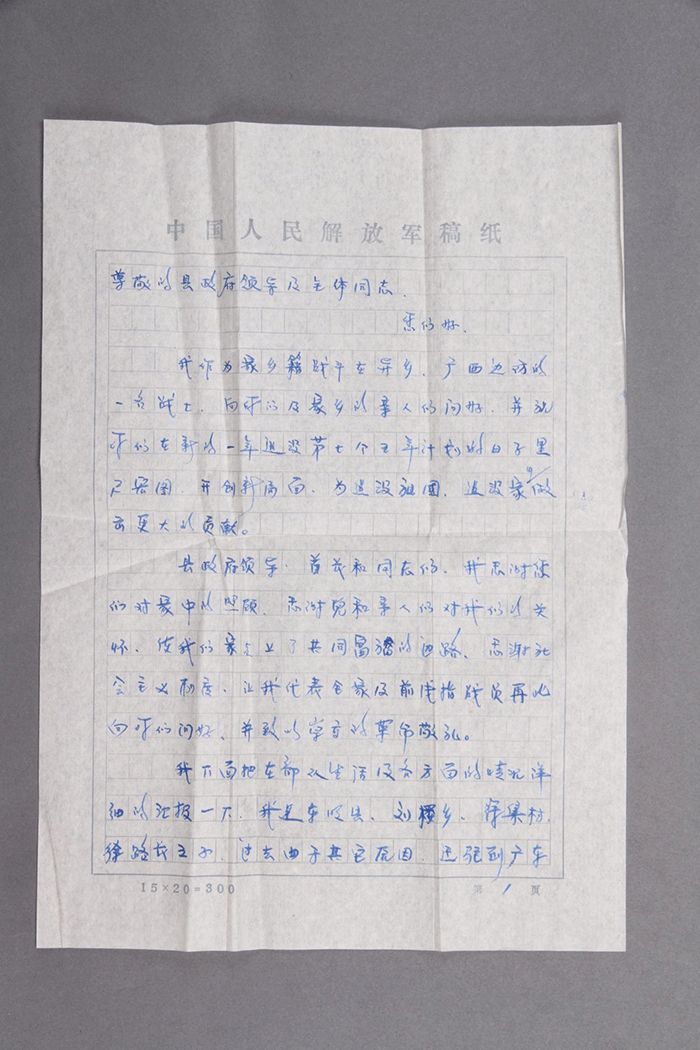 中国人民解放军稿纸
尊敬的县政府领导及全体同志.
您们好.
我作为家乡籍战斗在异乡、广西边防的
一名战士.向你们及家乡的亲人们问好.并祝
你们在新的一年建设第七个五年计划的日子里
宏图.开创新局面.为建设祖国.建设家乡做
出更大的贡献。
县政府领导.首长和同志们.我感谢您
们对家中的照顾.感谢党和亲人们对我们的关
怀.使我们家走上了共同富裕的道路.感谢社
会主义制度.让我代表全家及前线指战员再次
向你们问好.并致以崇高的革命敬礼。
我下面把在部队生活及各方面的情况详
细的汇报一下.我是 县.刘 乡.徐集村.
徐 长子.过去由于其它原因. 到广东
15×20=300
第1页